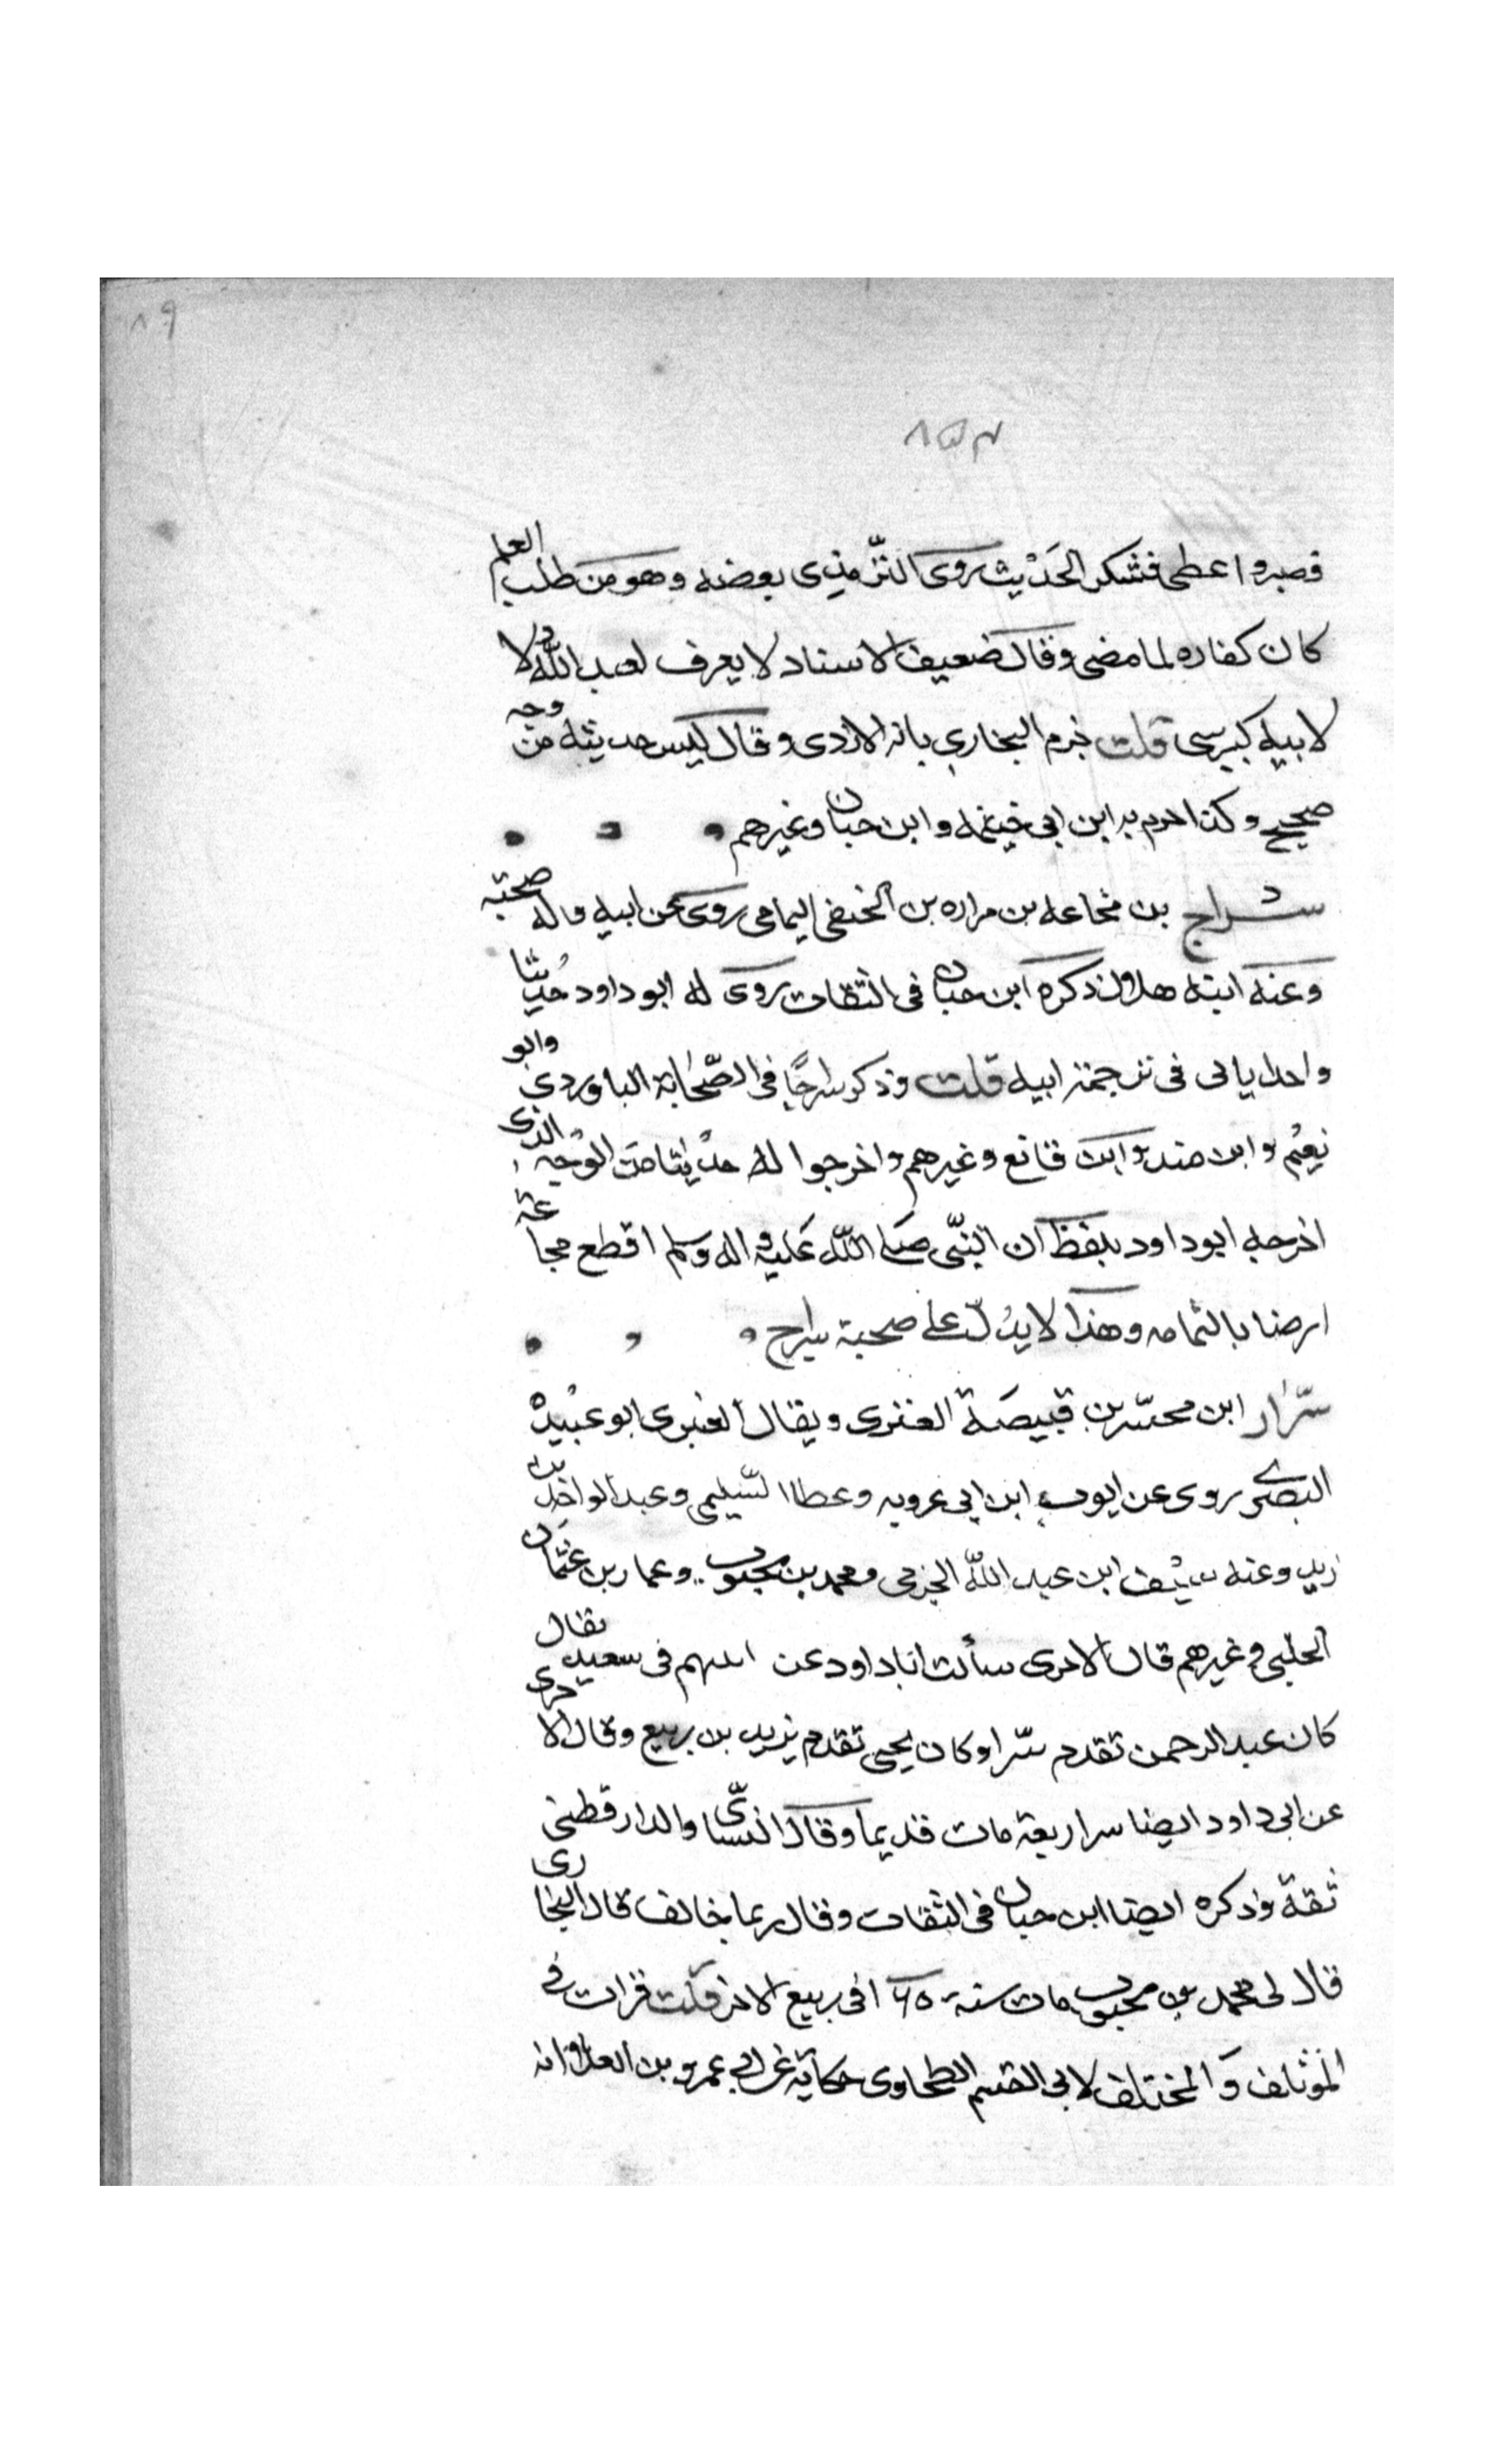 ٨٩
٨٥٣
فصبر واعطى فشكر الحديث روى الترمذي بعضه وهو من طلب العلم
كان كفاره لما مضى وقال ضعيف الاسناد لا يعرف لعبد الله ولا
لابيه كبير سي قلت جزم البخاري بانه الازدى وقال ليس حديثه من وجه
صحيح وكذا جزم به ابن ابي خيثمه وابن حبان وغيرهم
سراج بن مجاعه بن مراره بن الحنفى اليمامى روى عن ابيه وله صحبته
وعنه ابنه هلال ذكره ابن حبان فى الثقات روى له ابو داود حديثا
واحدا ياتى فى ترجمة ابيه قلت وذكر سراجًا فى الصّحابة الباوردي وابو
نعيم وابن منده وابن قانع وغيرهم واخرجوا له حديثا من الوجه الذى
اخرجه ابو داود بلفظ ان النبّى صلى اللّه عليه واله وسلم اقطع مجاعة
ارضا باليمامه وهذا لا يدلّ على صحبة سراج
سرّار ابن محسّر بن قبيصة العنزى ويقال العنبرى ابو عبيده
البصرى روى عن ايوب ابن ابي عروبه وعطا السّليمى وعبد الواحد بن
زيد وعنه سيف ابن عبد اللّه الجرمى ومحمد بن محبوب وعمار بن عثمان
الحلبى وغيرهم قال الاجرى سألت ابا داود عن اسهم فى سعيد فقال
كان عبد الرحمن تقدم سرّا وكان يحيى تقدم يزيد بن ربيع وقال الاجرى
عن ابى داود ايضا سرار بعة مات قديما وقال النسّاى والدارقطنى
ثقة وذكره ايضا ابن حبان فى الثقات وقال ربما يخالف قال البخارى
قال لى محمد بن محبوب مات سنة ١٦٥ فى ربيع الاخر قلت قرات فى
المؤتلف والمختلف لابى القسم الطحاوى حكاية عن ابي عمرو بن العلا انه